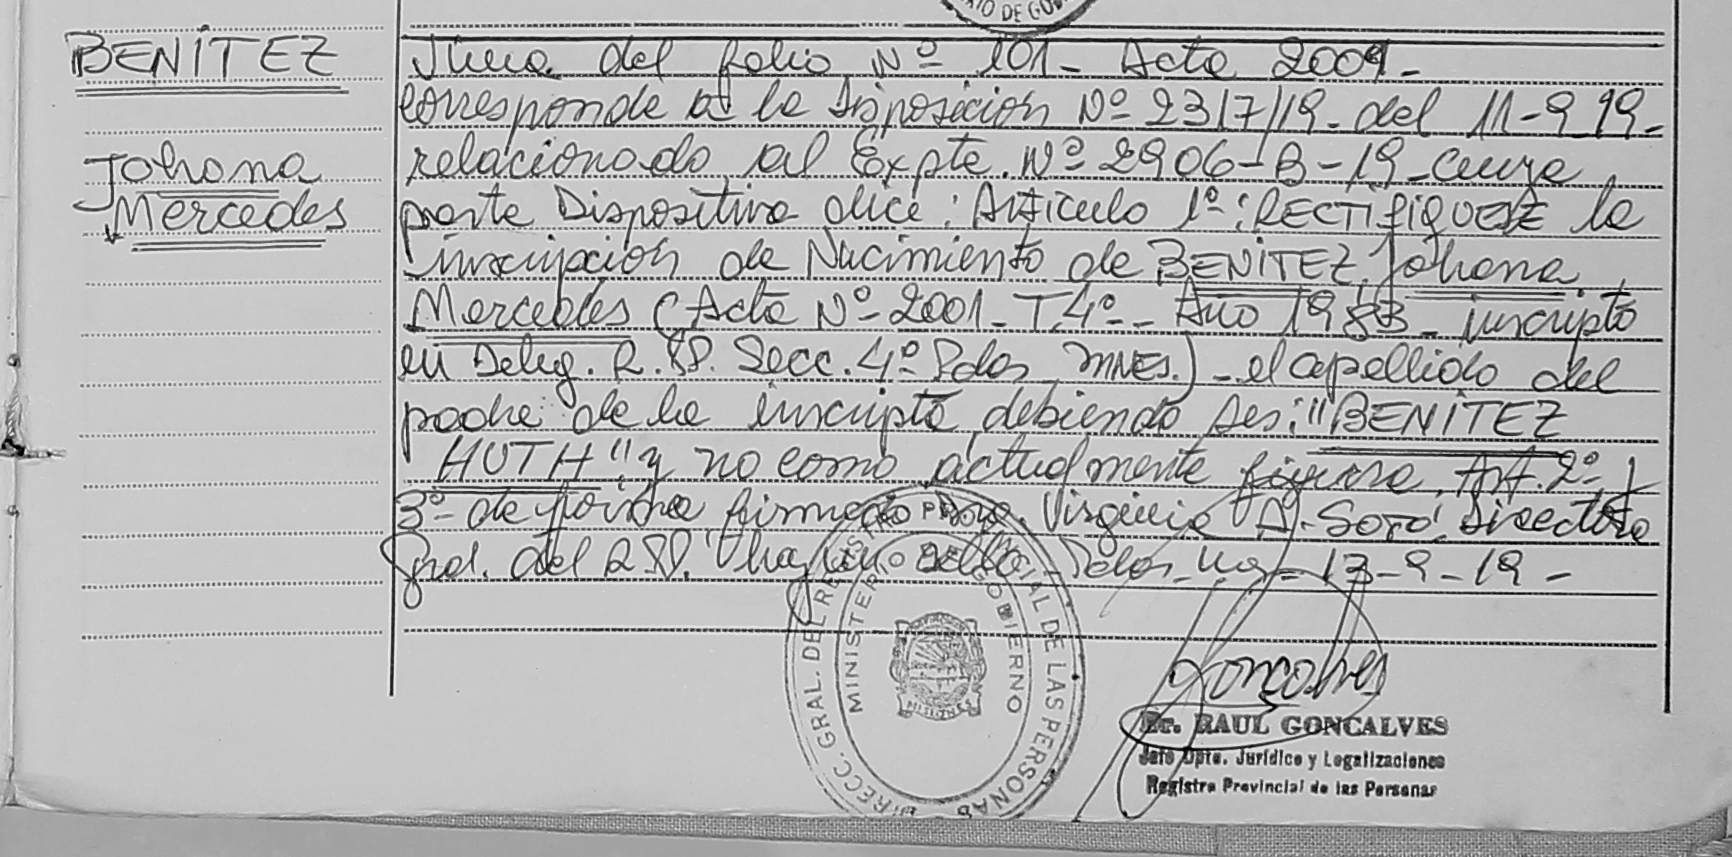 BENÍTEZ
Johana
Mercedes
del folio Nº 101- Acta 2001-
corresponde a la Disposición Nº 2317/19- del 11-9-19-
relacionado al Expte. Nº 2906-B-19- cuya
parte Dispositiva dice: Artículo 1º: RECTIFIQUESE la
inscripción de Nacimiento de BENÍTEZ, Johana
Mercedes (Acta Nº 2001- T.4º- Año 1983- inscripta
en Deleg. R.PP. Secc. 4º Pdas MNES.)- el apellido del
padre de la inscripta, debiendo ser: "BENÍTEZ
HUTH" y no como actualmente figura. Art. 2º y
3º- de forma, firmado Dra. Virginia A. Soto, Directora
Gral. del R.PP. Pdas- - 13-9-19-
Goncalves
Dr. RAUL GONCALVES
Jefe Dpto. Jurídico y Legalizaciones
Registro Provincial de las Personas
DIRECC. GRAL. DEL REGISTRO PROVINCIAL DE LAS PERSONAS
MINISTERIO DE GOBIERNO
MISIONES